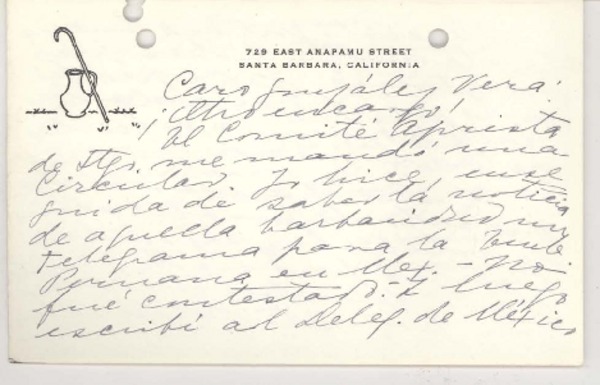 729 EAST ANAPAMU STREET
SANTA BARBARA, CALIFORNIA
Caro González Vera:
¡Otro encargo!
El Comité Aprista
de Stgo. me mandó una
Circular. Yo hice, ense
guida de saber la noticia
de aquella barbaridad un
telegrama para la
Peruana en Mex. - No
fué contestado. - Y luego
escribí al Deleg. de México